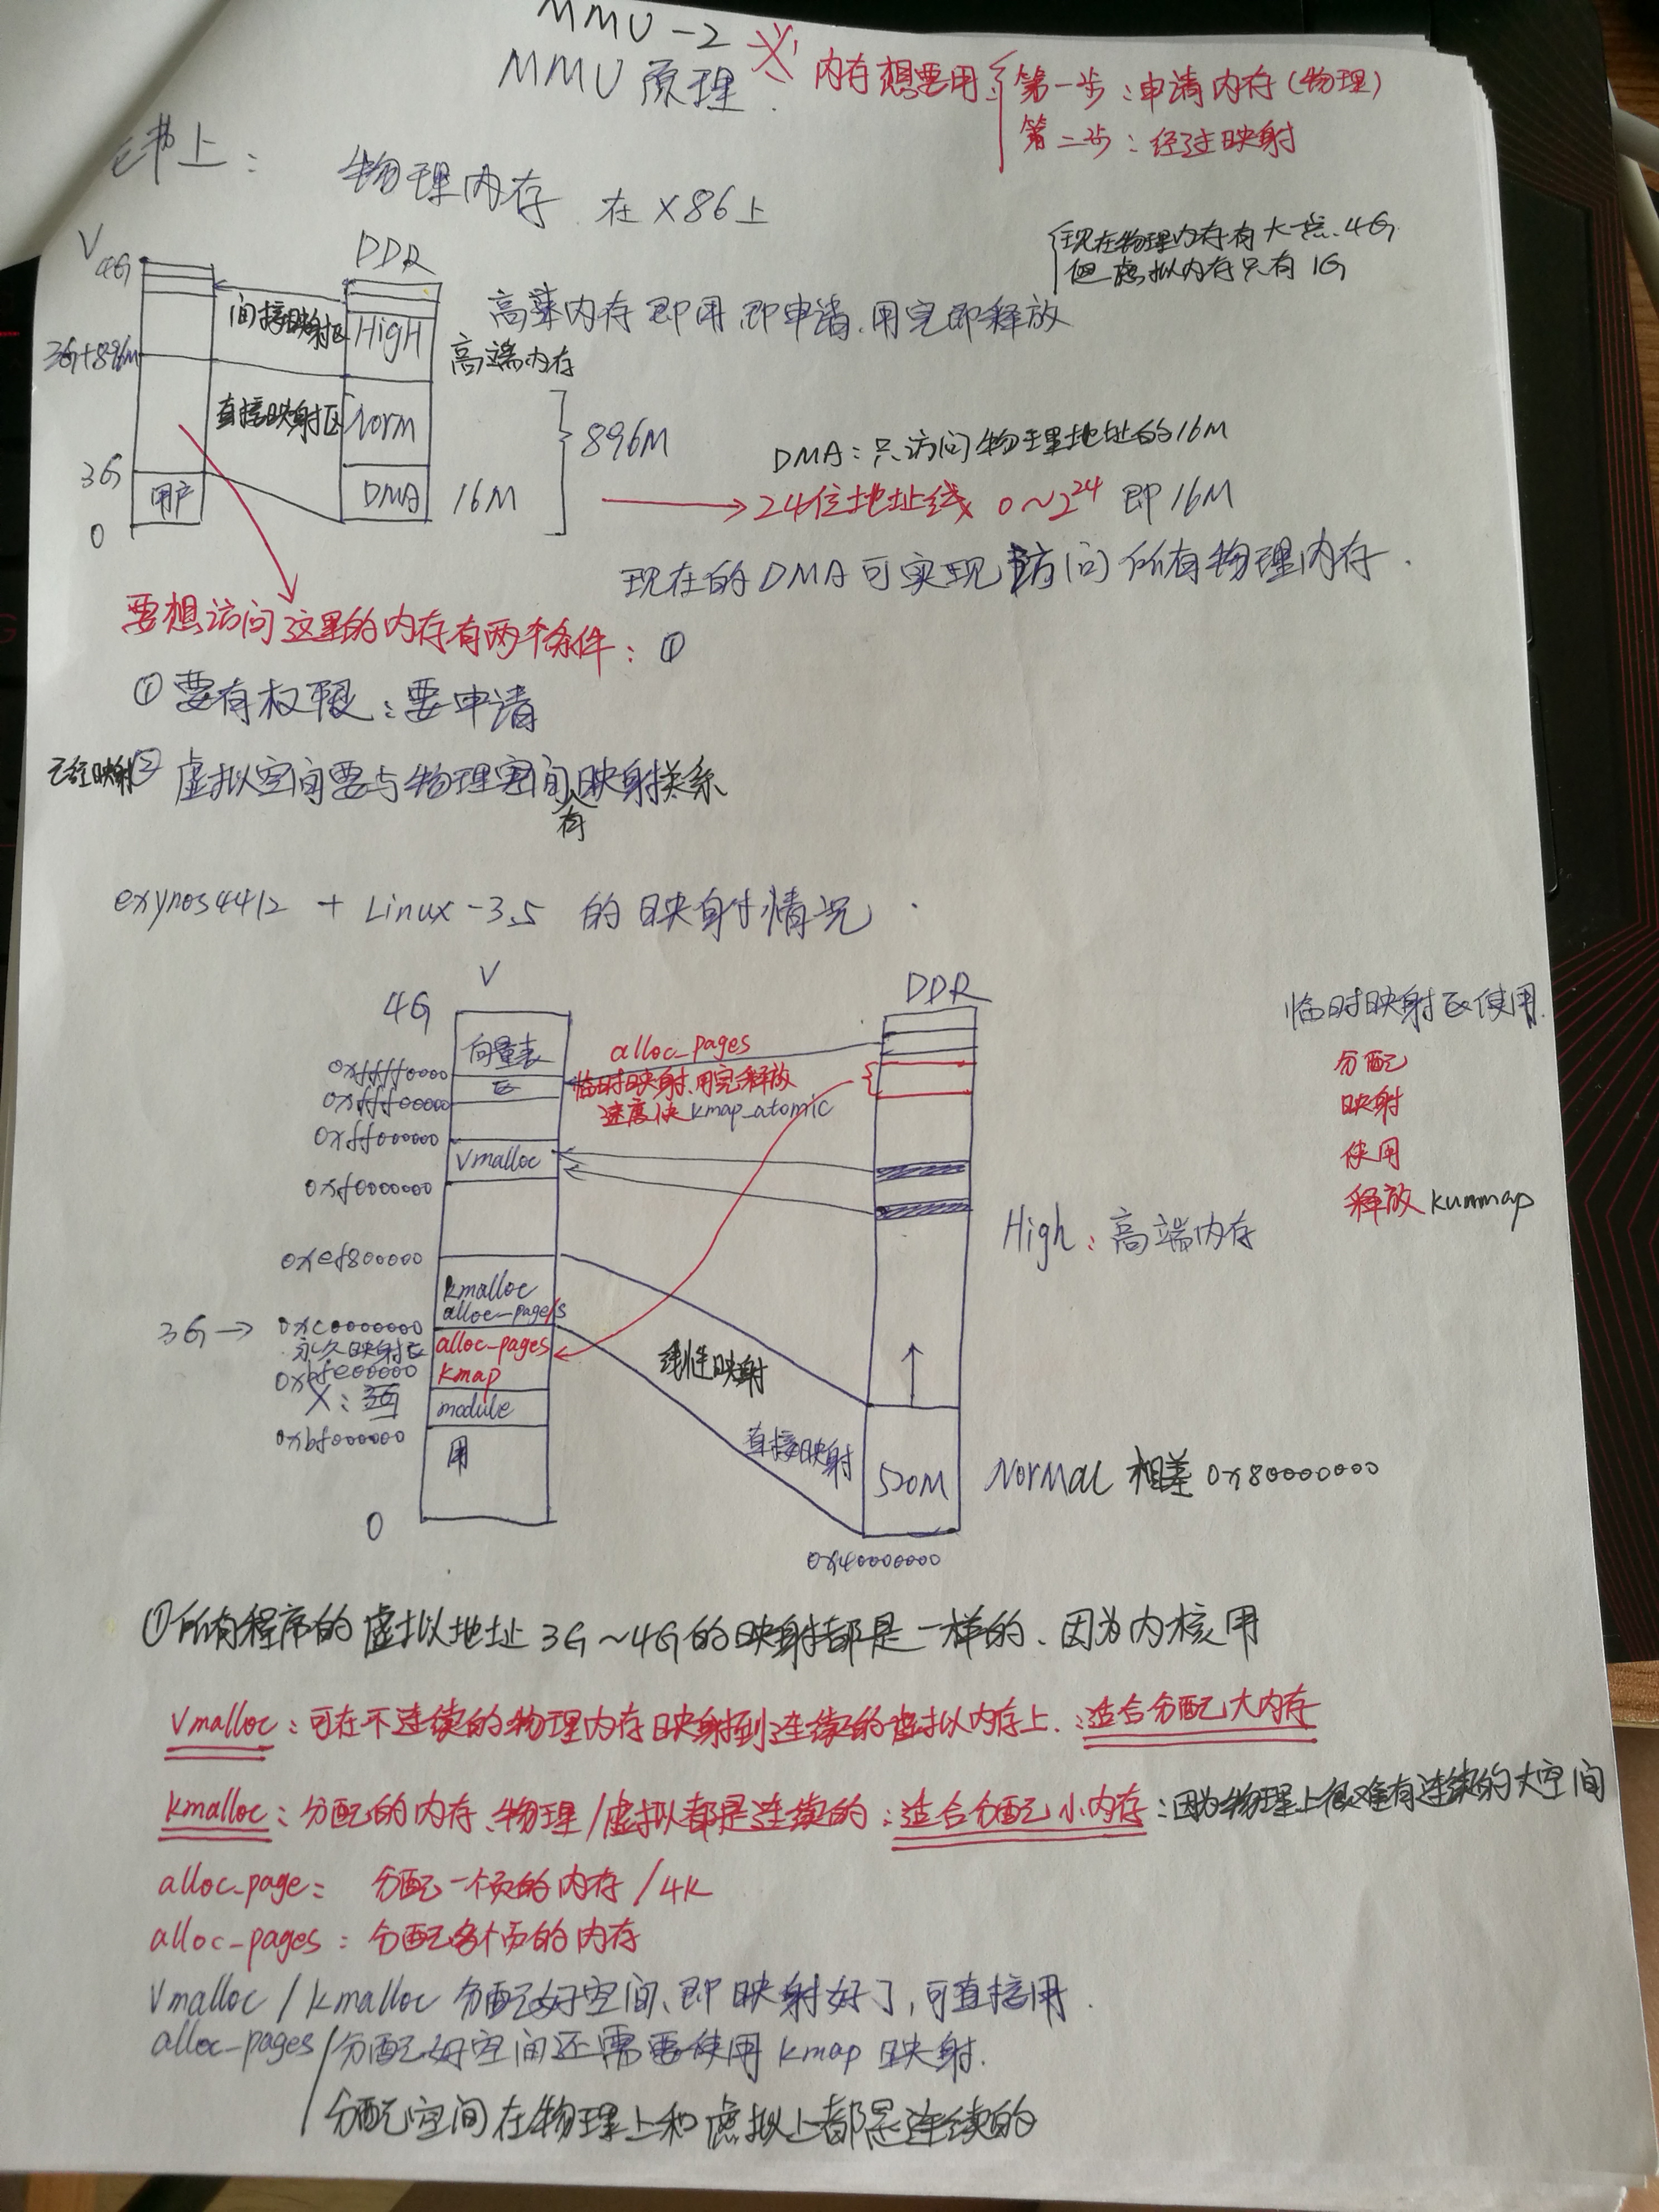 MMU-2
MMU 原理.
内存想要用: 第一步:申请内存(物理)
第二步:经过映射
书上:
物理内存. 在X86上
现在物理内存有大一点.4G
但虚拟内存只有1G
V
DDR
4G
间接映射区
HigH
高端内存即用即申请.用完即释放
高端内存
3G+896M
直接映射区
Norm
896M
3G
用户
DMA
16M
0
DMA:只访问物理地址的16M
24位地址线 0~2^24 即16M
现在的DMA可实现访问所有物理内存.
要想访问这里的内存有两个条件: ①
①要有权限:要申请
已经映射 ② 虚拟空间要与物理空间有映射关系
exynos4412 + Linux-3.5 的映射情况.
V
DDR
4G
向量表
区
0xffff0000
0xfff00000
0xff000000
alloc_pages
临时映射.用完释放
速度快 kmap_atomic
临时映射区使用.
分配
映射
使用
释放 kummap
Vmalloc
0xf0000000
High:高端内存
0xef800000
kmalloc
alloc-pages
3G→ 0xc0000000
永久映射区
alloc-pages
kmap
0xbfe00000
module
0xbf000000
用
0
线性映射
直接映射
520M
Normal 相差0x80000000
0x40000000
①所有程序的虚拟地址3G~4G的映射都是一样的、因为内核用
Vmalloc:可在不连续的物理内存映射到连续的虚拟内存上.:适合分配大内存
kmalloc:分配的内存、物理/虚拟都是连续的:适合分配小内存:因为物理上很难有连续的大空间
alloc-page: 分配一个页的内存/4K
alloc-pages: 分配多个页的内存
Vmalloc/kmalloc 分配好空间、即映射好了,可直接用.
alloc-pages/分配好空间还需要使用kmap映射.
分配空间在物理上和虚拟上都是连续的